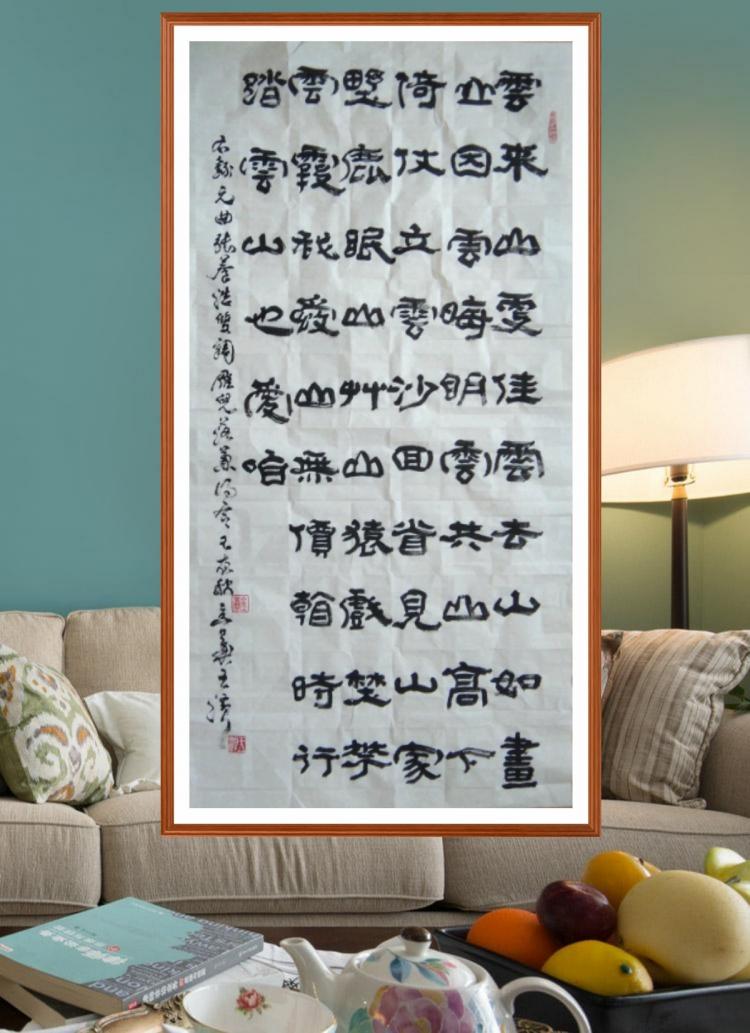 雲来山更佳雲去山如畫
山因雲晦明雲共山高下
倚仗立雲沙回首見山家
野鹿眠山艸山猿戲埜華
雲霞我愛山無價看時行
踏雲山也愛咱
右錄元曲張養浩雙調雁兒落兼得令